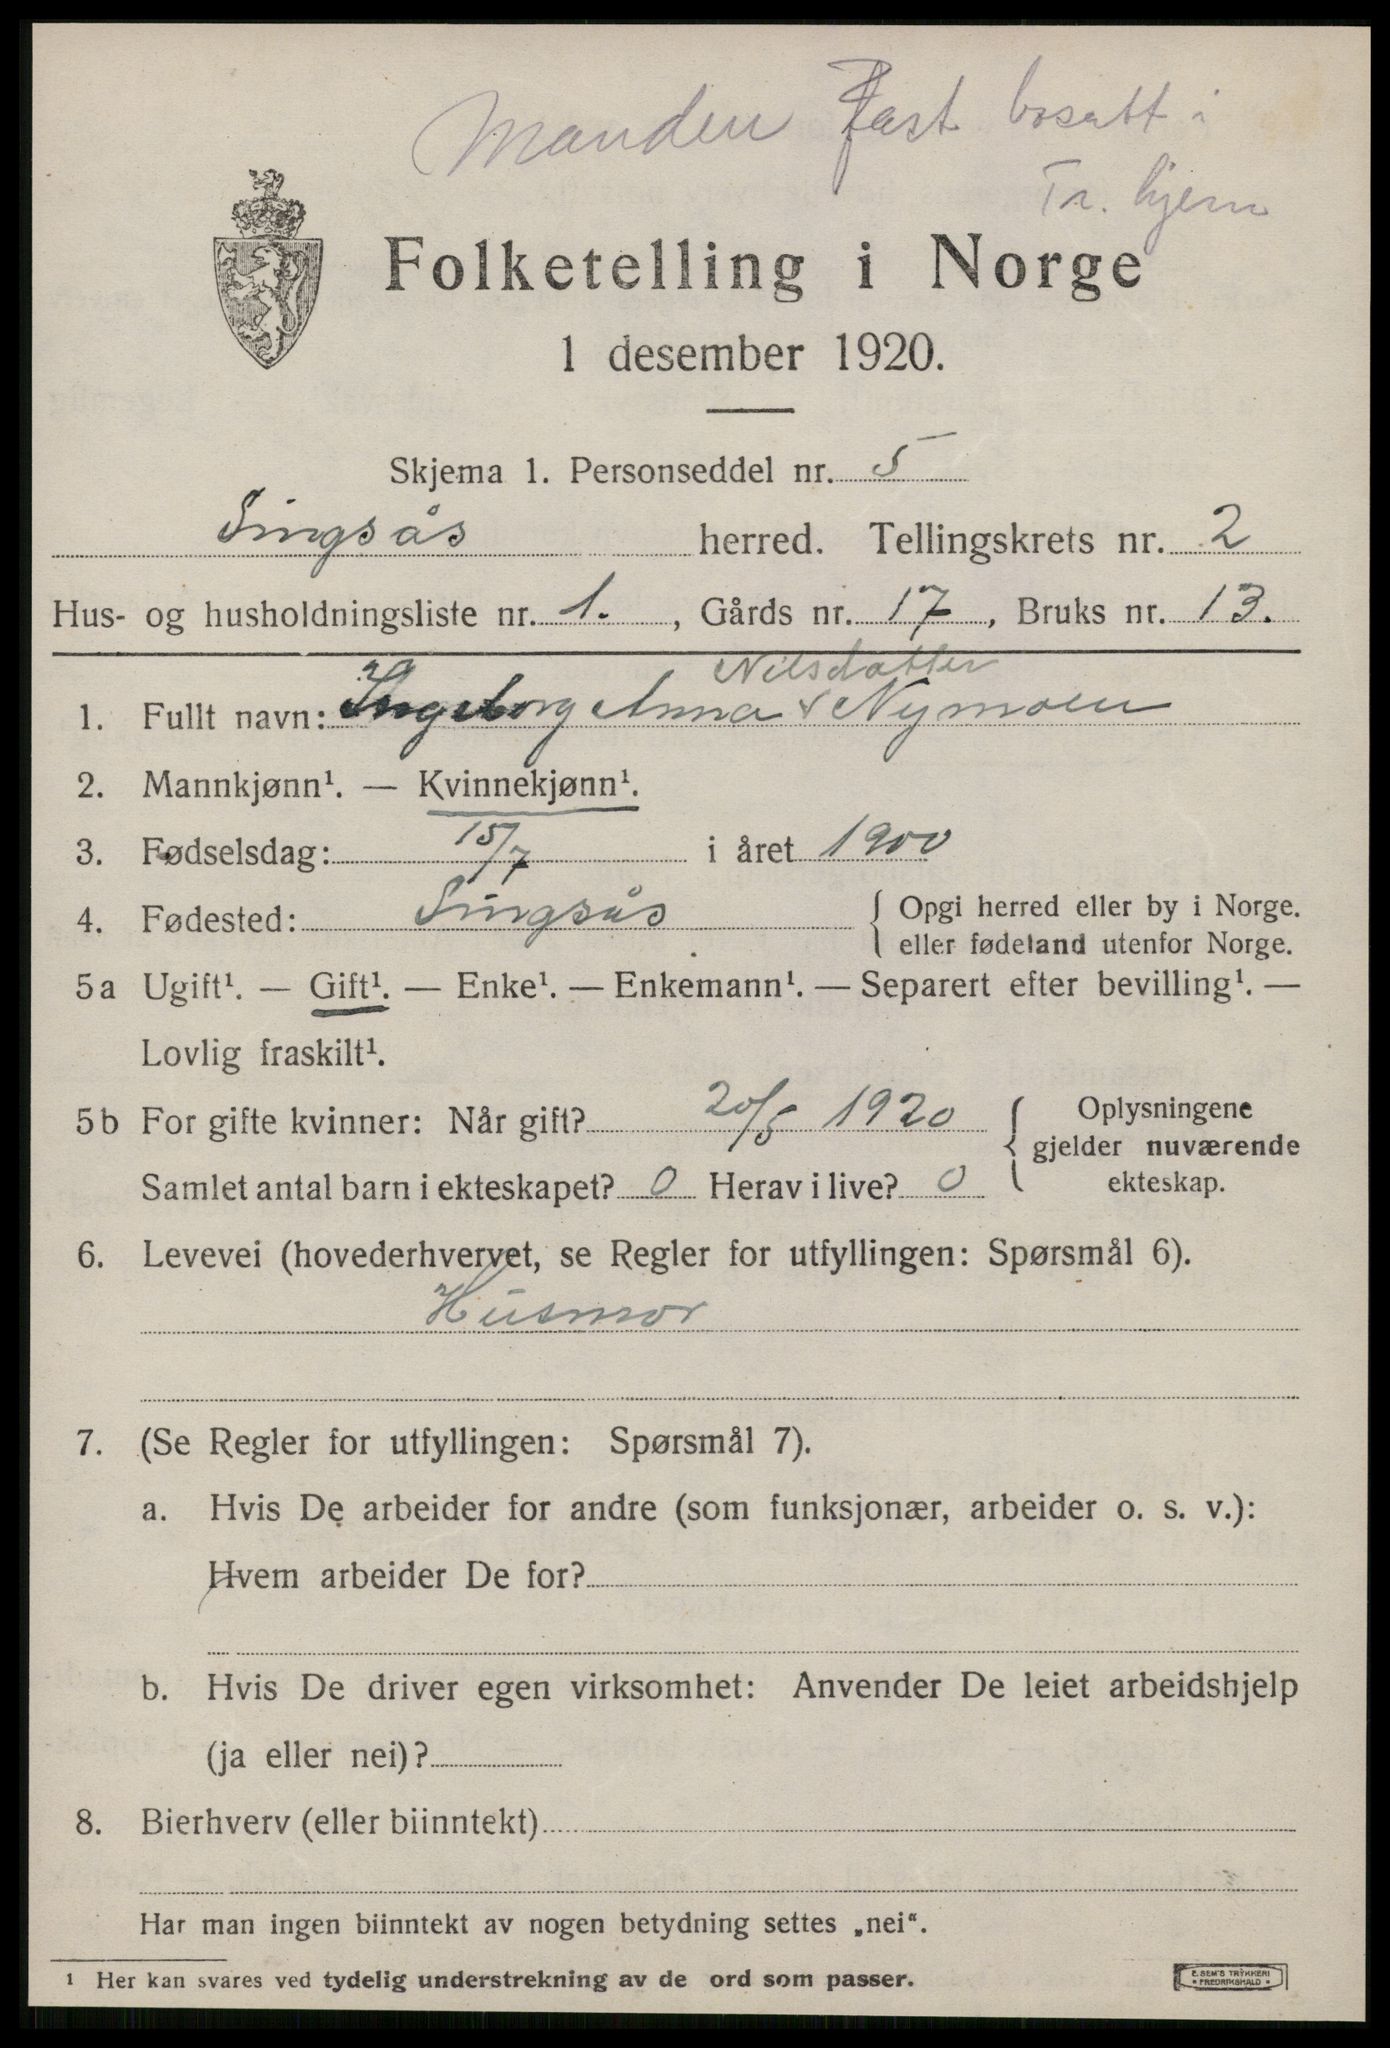 Manden Fast bosatt i
Tr. hjem
Folketelling i Norge
1 desember 1920.
Skjema 1. Personseddel nr. 5
Singsås herred. Tellingskrets nr. 2
Hus- og husholdningsliste nr. 1. , Gårds nr. 17 , Bruks nr. 13.
Nilsdatter
1. Fullt navn: Ingeborg Anna Nymoen
2. Mannkjønn¹. — Kvinnekjønn¹.
3. Fødselsdag: 15/7 i året 1900
4. Fødested: Singsås { Opgi herred eller by i Norge.
eller fødeland utenfor Norge.
5a Ugift¹. — Gift¹. — Enke¹. — Enkemann¹. — Separert efter bevilling¹. —
Lovlig fraskilt¹.
5b For gifte kvinner: Når gift? 20/5 1920 { Oplysningene
gjelder nuværende
Samlet antal barn i ekteskapet? 0 Herav i live? 0 ekteskap.
6. Levevei (hovederhvervet, se Regler for utfyllingen: Spørsmål 6).
Husmor
7. (Se Regler for utfyllingen: Spørsmål 7).
a. Hvis De arbeider for andre (som funksjonær, arbeider o. s. v.):
Hvem arbeider De for?
b. Hvis De driver egen virksomhet: Anvender De leiet arbeidshjelp
(ja eller nei)?
8. Bierhverv (eller biinntekt)
Har man ingen biinntekt av nogen betydning settes „nei".
¹ Her kan svares ved tydelig understrekning av de ord som passer.
E. SEM'S TRYKKERI
FREDRIKSHALD